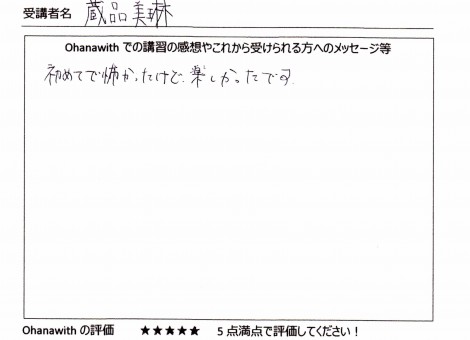 受講者名 蔵品美琳
Ohanawith での講習の感想やこれから受けられる方へのメッセージ等
初めてで怖かったけど、楽しかったです
Ohanawith の評価 ★★★★★ 5点満点で評価してください！